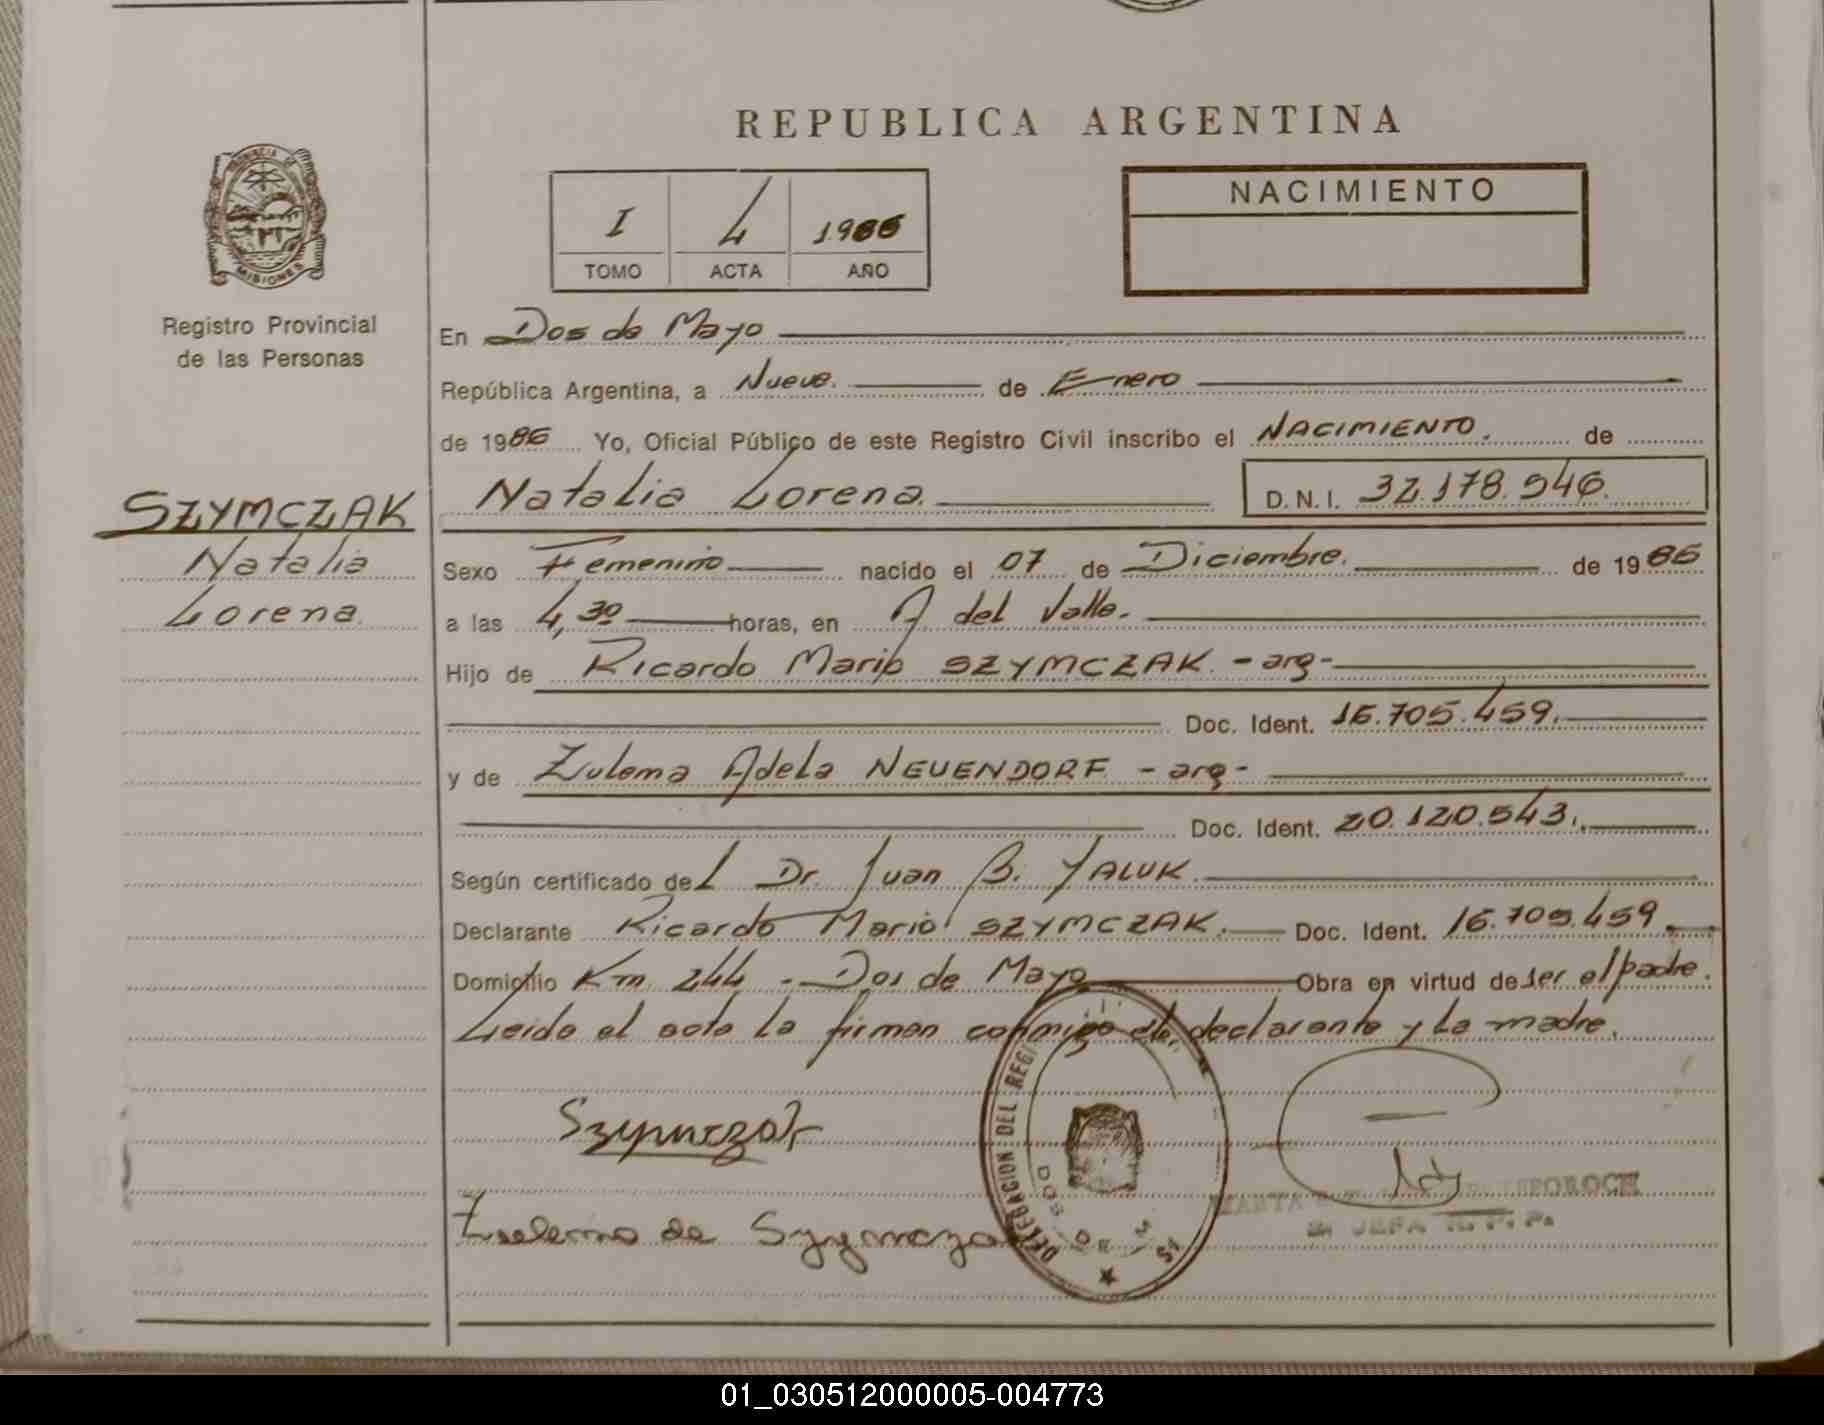 REPUBLICA ARGENTINA
PROVINCIA DE
MISIONES
Registro Provincial
de las Personas
I 4 1986
TOMO ACTA AÑO
NACIMIENTO
En Dos de Mayo
República Argentina, a Nueve. de Enero
de 1986 Yo, Oficial Público de este Registro Civil inscribo el NACIMIENTO. de
SZYMCZAK
Natalia
Lorena.
Natalia Lorena. D.N.I. 32.178.546.
Sexo Femenino nacido el 07 de Diciembre. de 1986
a las 4,30 horas, en A del Valle.
Hijo de Ricardo Mario SZYMCZAK. - arg-
Doc. Ident. 16.705.459.
y de Zulema Adela NEUENDORF - arg-
Doc. Ident. 20.120.543.
Según certificado del Dr. Juan B. YALUK.
Declarante Ricardo Mario SZYMCZAK. Doc. Ident. 16.705.459
Domicilio Km 244 - Dos de Mayo Obra en virtud de ser el padre.
Leida el acta la firman conmigo el declarante y la madre.
Szymczak
Zulema de Szymcza
DELEGACION DEL REGI
DOS DE
JEFA R. P. P.
01_030512000005-004773